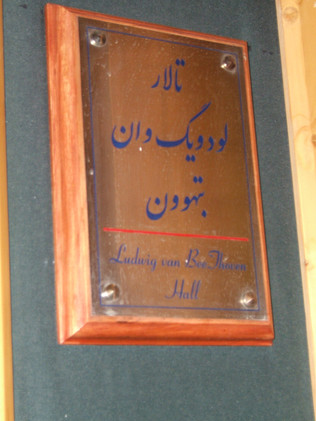 تالار
لودویگ وان
بتهوون
Ludwig van BeeThoven
Hall